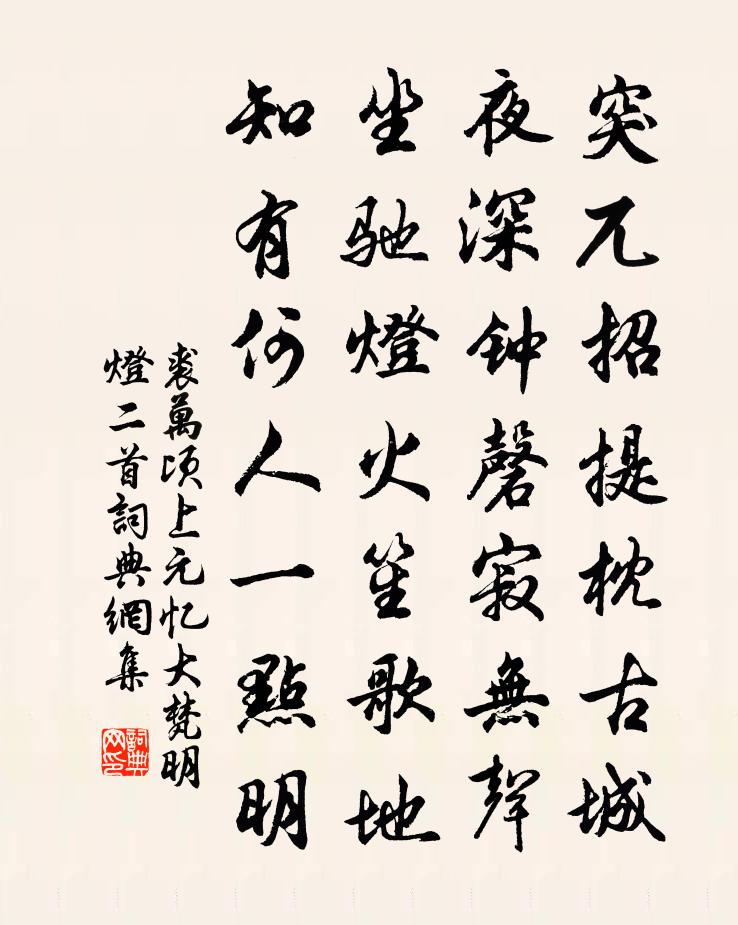 突兀招提枕古城
夜深钟磬寂無聲
坐馳燈火笙歌地
知有何人一點明
裘萬頃上元忆大梵明
燈二首詞典網集
詞典
网印